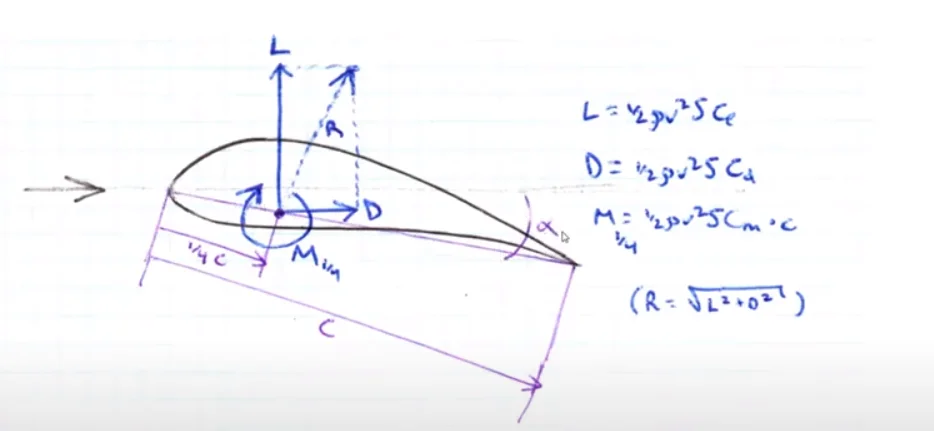 L
R
D
α
M 1/4
1/4 C
C
L = 1/2 ρv² S Cℓ
D = 1/2 ρv² S Cd
M 1/4 = 1/2 ρv² S Cm · c
(R = √L² + D²)